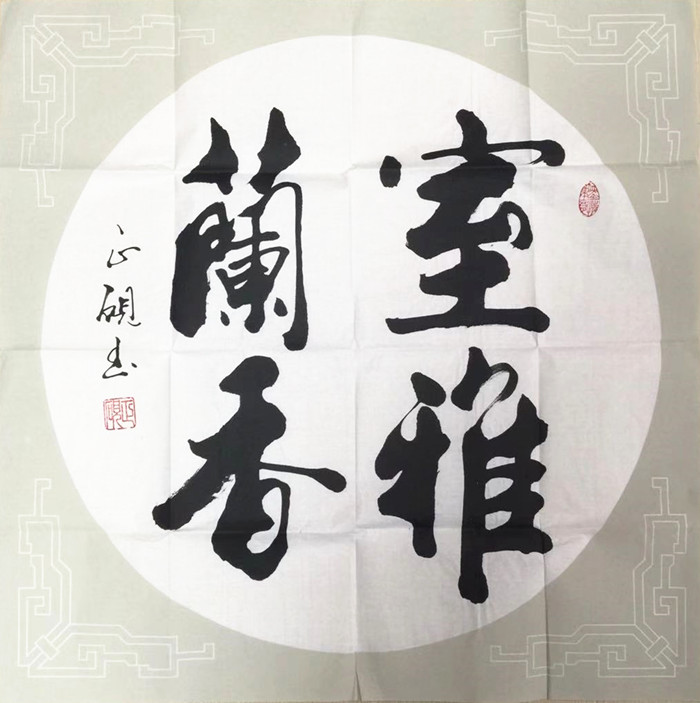 室雅
蘭香
正硯书